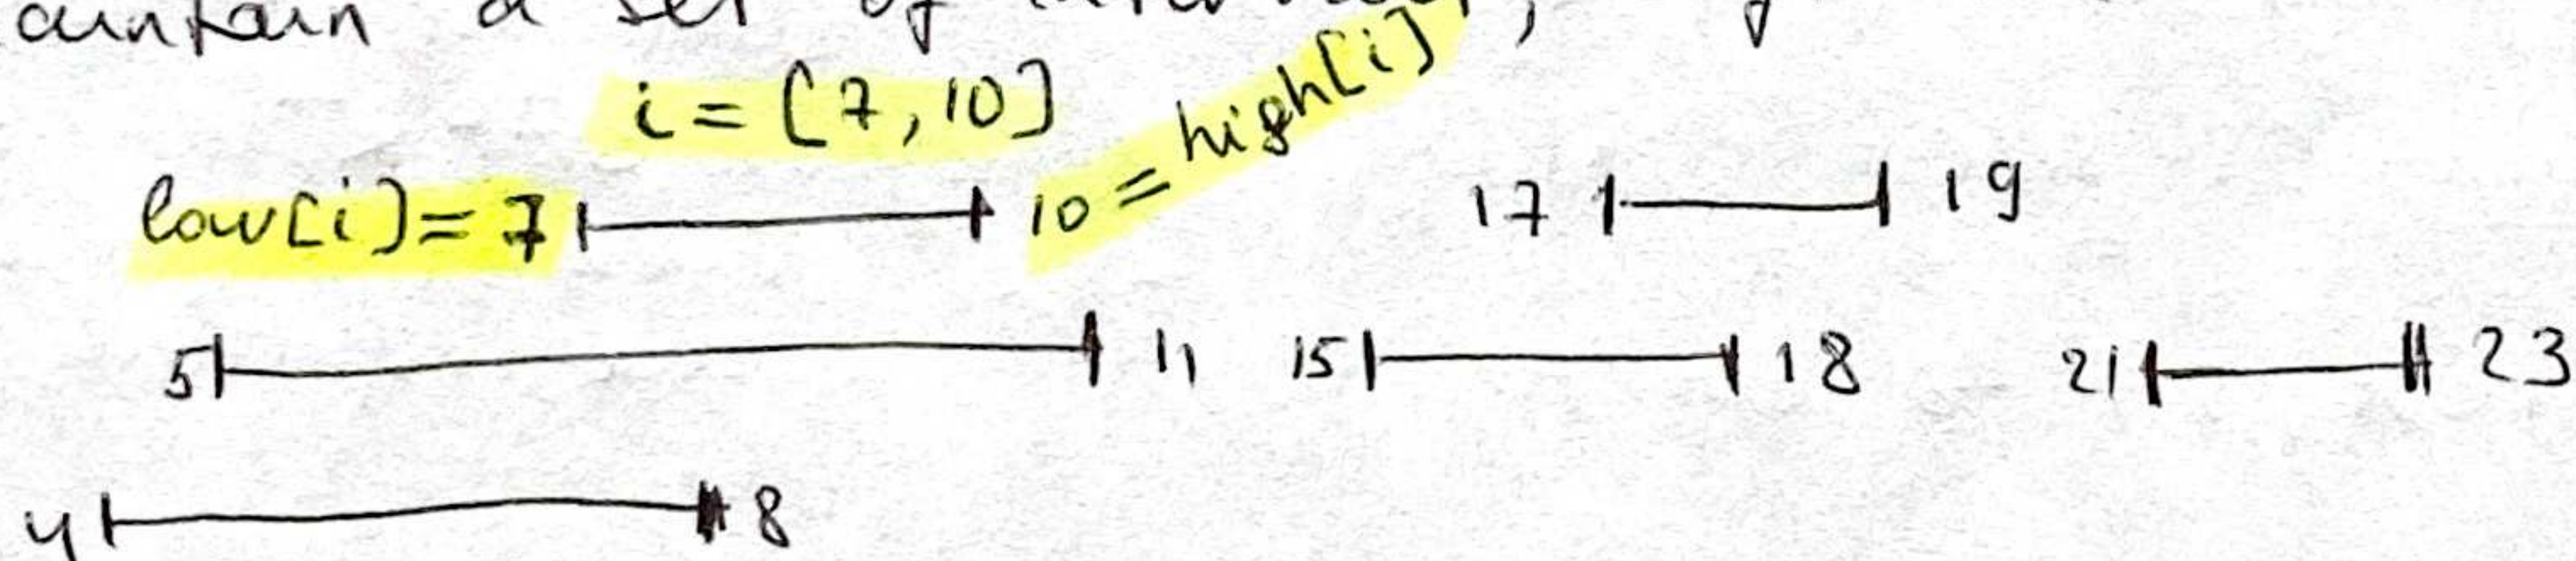 a set of
i = [7, 10]
low[i] = 7 10 = high[i] 17 19
5 11 15 18 21 23
4 8